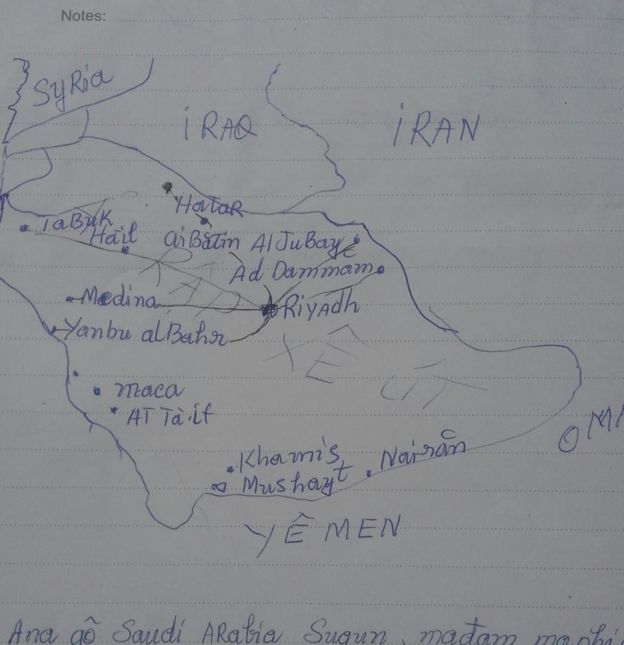 Notes:
SyRia
iRAQ
iRAN
HataR
TaBuK
Hail
aiBâtin
Al JuBaye
Ad Dammam
Medina
Riyadh
Yanbu al Bahr
Ả RẬP
XÊ ÚT
maca
AT Tà if
Khamis
Mushayt
Nairân
YÊ MEN
Ana gô Saudi ARabia Suqun, madam